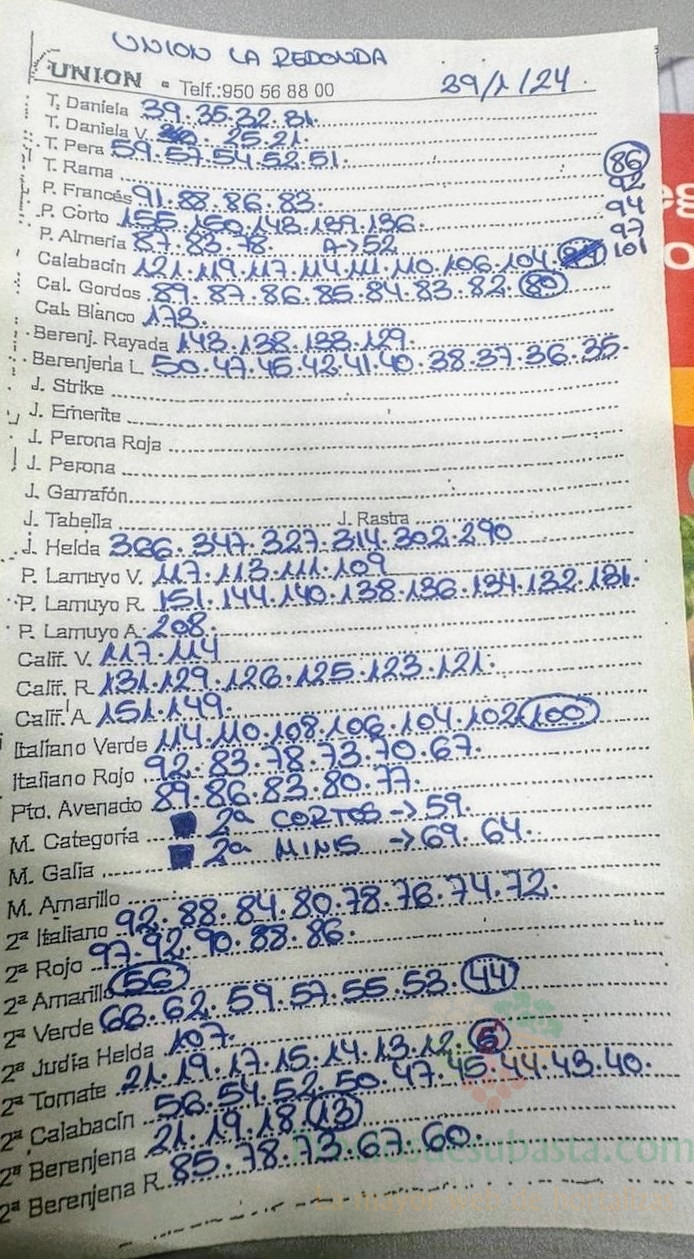 UNION LA REDONDA
UNION • Telf.: 950 56 88 00 29/1/24
T. Daniela 39.35.32.31.
T. Daniela V. 25.21.
T. Pera 59.57.54.52.51.
T. Rama 86
P. Francés 91.88.86.83. 92
P. Corto 155.150.143.139.136. 94
P. Almería 87.83.78. A->52 97
Calabacín 121.119.117.114.111.110.106.104. 101
Cal. Gordos 89.87.86.85.84.83.82.80
Cal. Blanco 173.
Berenj. Rayada 143.138.133.129.
Berenjena L. 50.47.45.42.41.40.38.37.36.35.
J. Strike
J. Emerite
J. Perona Roja
J. Perona
J. Garrafón
J. Tabella J. Rastra
J. Helda 366.347.327.314.302.290
P. Lamuyo V. 117.113.111.109
P. Lamuyo R. 151.144.140.138.136.134.132.131.
P. Lamuyo A. 208.
Calif. V. 117.114
Calif. R. 131.129.126.125.123.121.
Calif. A. 151.149.
Italiano Verde 114.110.108.106.104.102.100
Italiano Rojo 92.83.78.73.70.67.
Pto. Avenado 89.86.83.80.77.
M. Categoría 2ª CORTOS -> 59.
M. Galia 2ª MINIS -> 69.64.
M. Amarillo
2ª Italiano 92.88.84.80.78.76.74.72.
2ª Rojo 97.92.90.88.86.
2ª Amarillo 56
2ª Verde 66.62.59.57.55.53.44
2ª Judía Helda 107.
2ª Tomate 21.19.17.15.14.13.12.6
2ª Calabacín 56.54.52.50.47.45.44.43.40.
2ª Berenjena 21.19.18.13
2ª Berenjena R. 85.78.73.67.60.